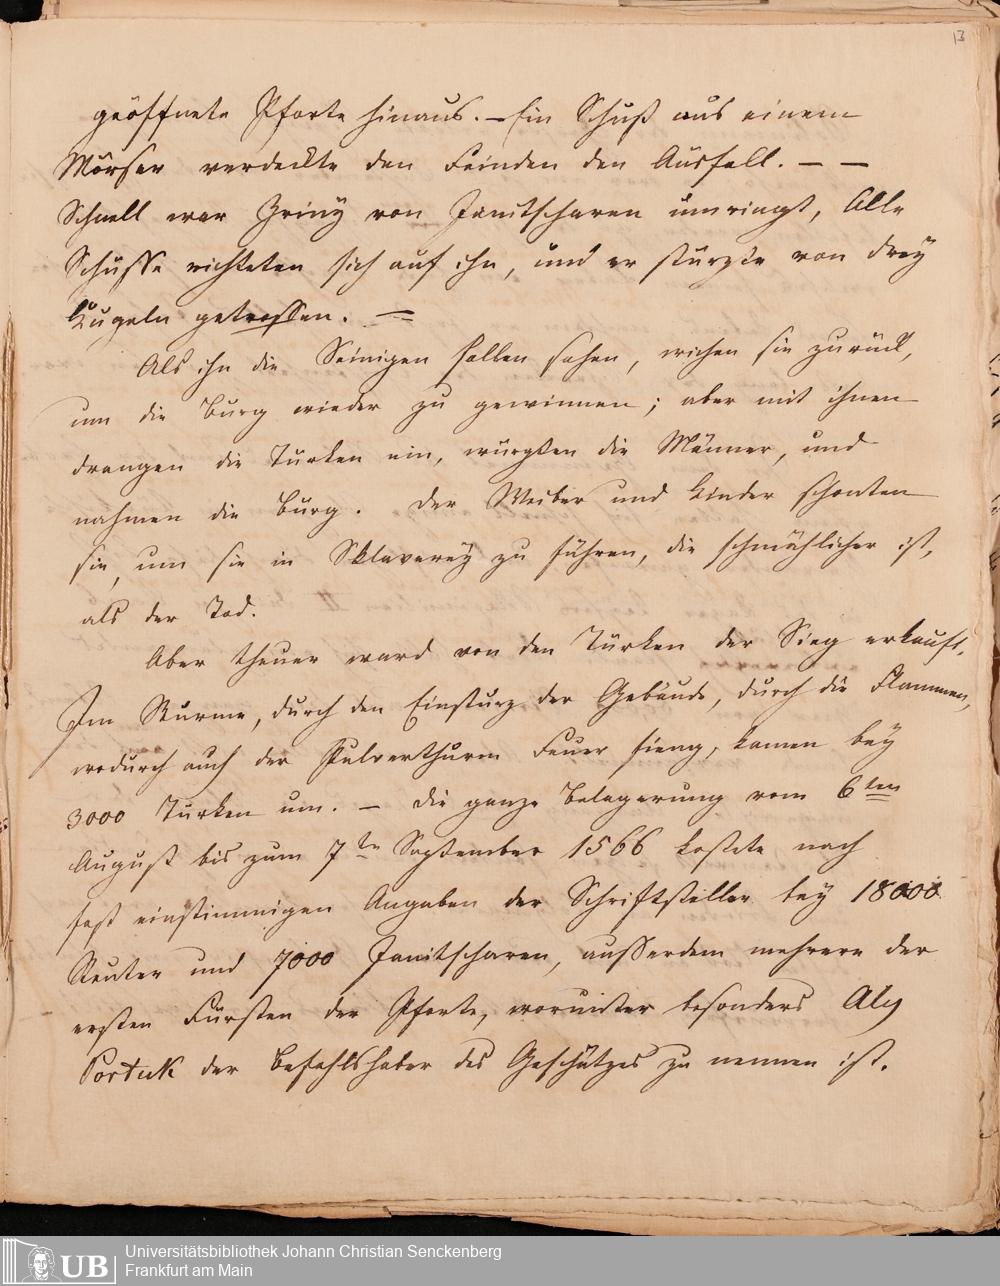 13
geöffnete Pforte hinaus. – Ein Schuß aus einem
Mörser verdeckte den Feinden den Ausfall. – –
Schnell war Zriny von Janitscharen umringt, Alle
Schüsse richteten sich auf ihn, und er stürzte von drey
Kugeln getroffen. –
Als ihn die Seinigen fallen sahen, wichen sie zurück,
um die Burg wieder zu gewinnen; aber mit ihnen
drangen die Türken ein, würgten die Männer, und
nahmen die Burg. Der Weiber und Kinder schonten
sie, um sie in Sklaverey zu führen, die schmählicher ist,
als der Tod.
Aber theuer ward von den Türken der Sieg erkauft.
Im Sturme, durch den Einsturz der Gebäude, durch die Flammen,
wodurch auch der Pulverthurm Feuer fieng, kamen bey
3000 Türken um. – Die ganze Belagerung vom 6ten
August bis zum 7te September 1566 kostete nach
fast einstimmigen Angaben der Schriftsteller bey 18000
Reuter und 7000 Janitscharen, ausserdem mehrere der
ersten Fürsten der Pforte, worunter besonders Aly
Portuk der Befehlshaber des Geschützes zu nennen ist.
UB
Universitätsbibliothek Johann Christian Senckenberg
Frankfurt am Main